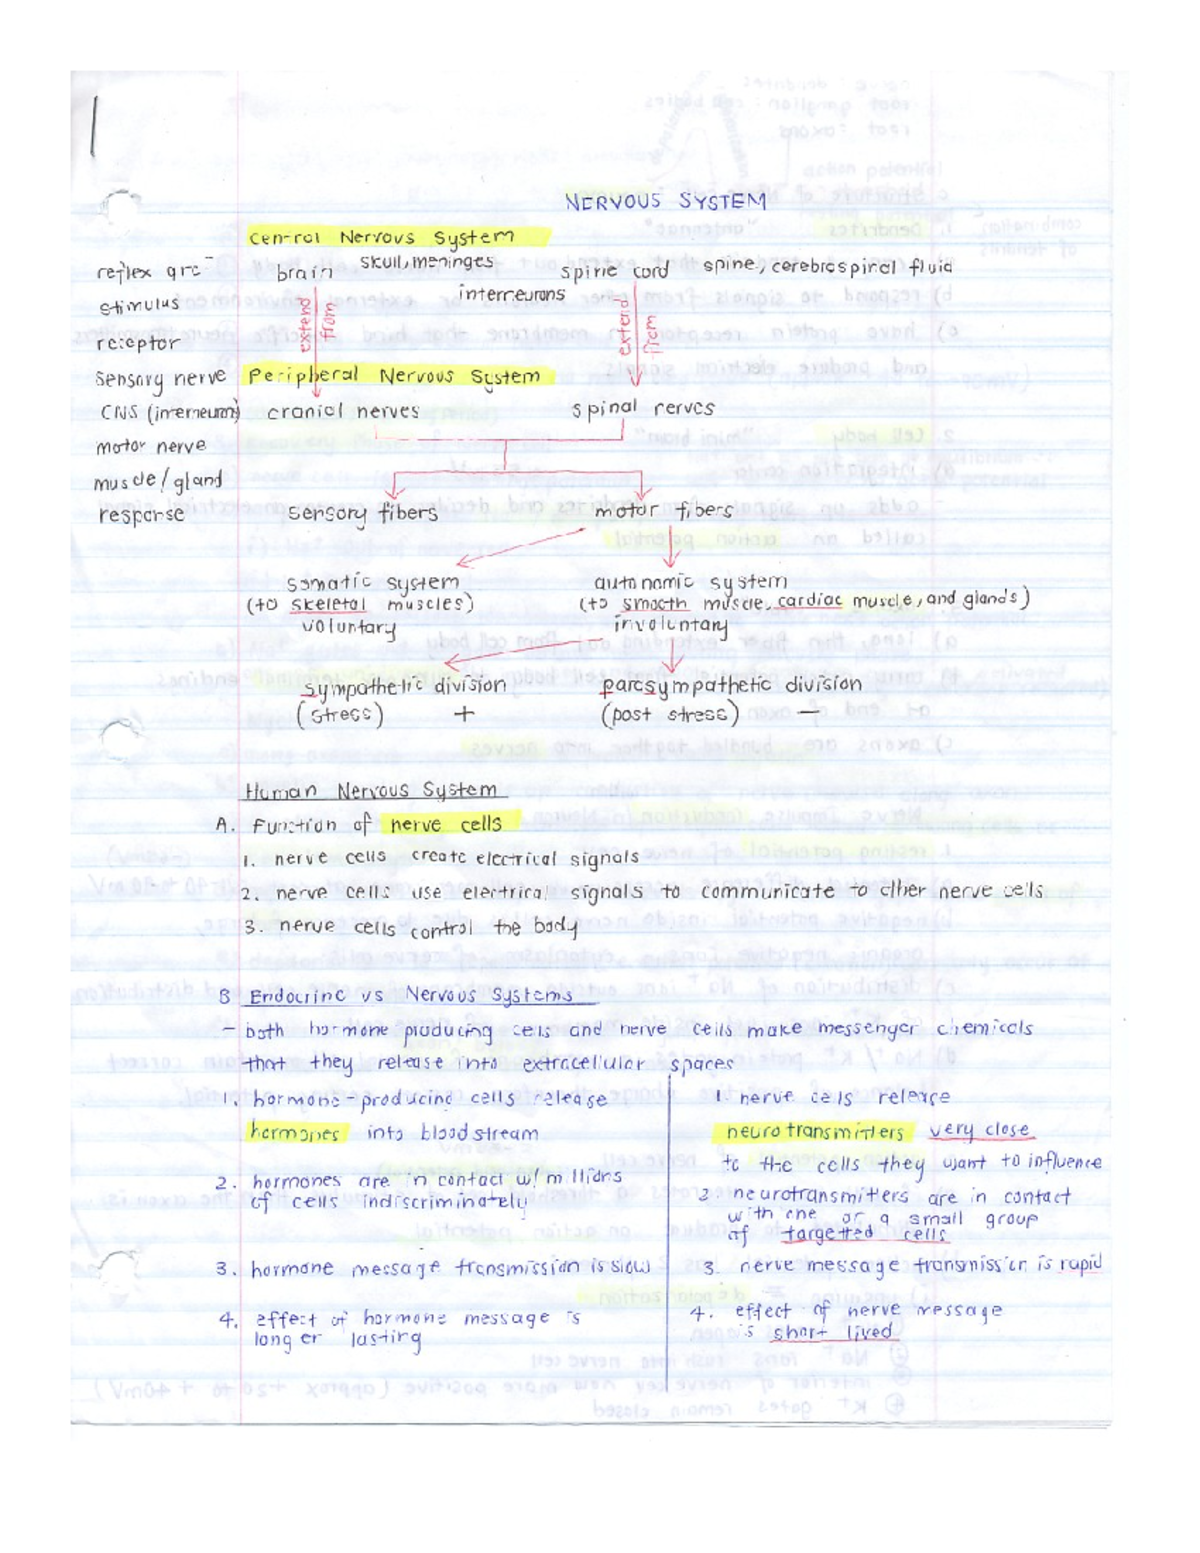 NERVOUS SYSTEM
Central Nervous System
reflex arc
brain skull, meninges spine cord spine, cerebrospiral fluid
stimulus
interneurons
extend from
extend from
receptor
sensory nerve Peripheral Nervous System
CNS (interneuron) cranial nerves spinal nerves
motor nerve
muscle/gland
response sensory fibers motor fibers
somatic system autonomic system
(to skeletal muscles) (to smooth muscle, cardiac muscle, and glands)
voluntary involuntary
sympathetic division parasympathetic division
(stress) + (post stress) —
Human Nervous System
A. Function of nerve cells
1. nerve cells create electrical signals
2. nerve cells use electrical signals to communicate to other nerve cells
3. nerve cells control the body
B Endocrine vs Nervous Systems
- both hormone producing cells and nerve cells make messenger chemicals
that they release into extracellular spaces
1. hormone-producing cells release
hormones into bloodstream
2. hormones are in contact w/ millions
of cells indiscriminately
3. hormone message transmission is slow
4. effect of hormone message is
longer lasting
1 nerve cells release
neurotransmitters very close
to the cells they want to influence
2. neurotransmitters are in contact
with one or a small group
of targetted cells
3. nerve message transmission is rapid
4. effect of nerve message
is short lived